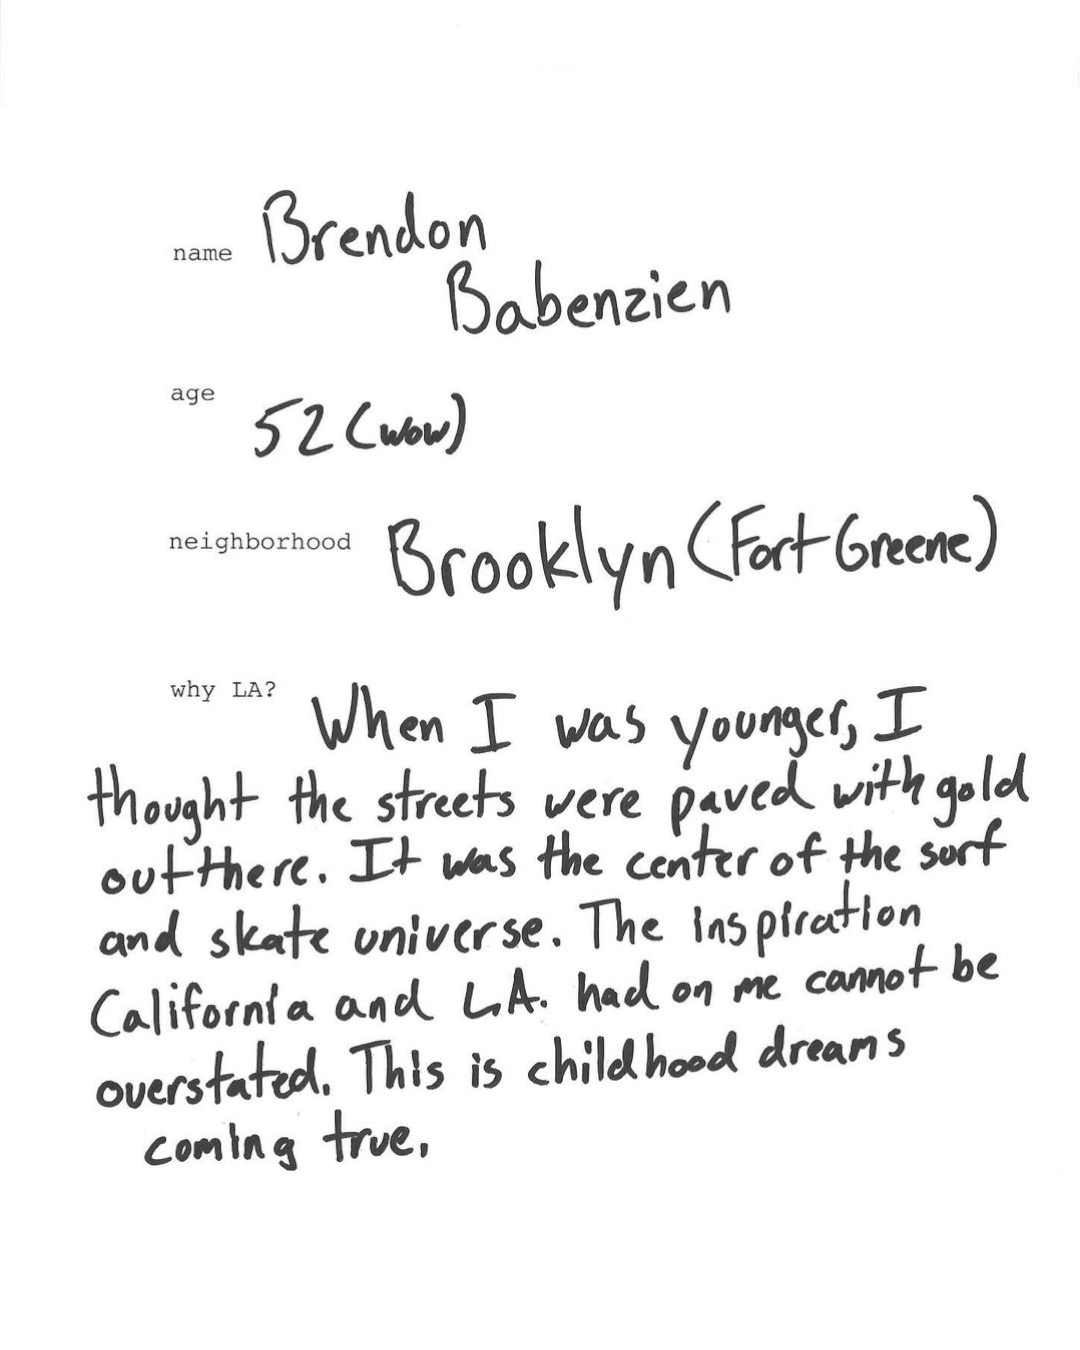 name Brendon
Babenzien
age 52 (wow)
neighborhood Brooklyn (Fort Greene)
why LA? When I was younger, I
thought the streets were paved with gold
out there. It was the center of the surf
and skate universe. The inspiration
California and L.A. had on me cannot be
overstated. This is childhood dreams
coming true.